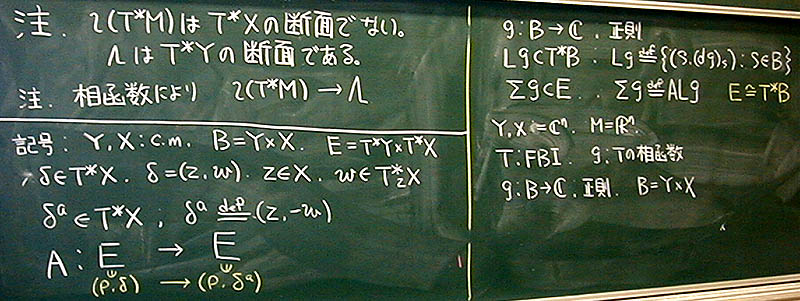 注. ι(T*M)はT*Xの断面でない。
ΛはT*Yの断面である。
注. 相函数により ι(T*M) → Λ
記号: Y, X : c.m. B=Y×X. E=T*Y×T*X
δ∈T*X. δ=(z,w). z∈X. w∈T*_zX
δ^a∈T*X ; δ^a def= (z,-w)
A : E → E
(ρ.δ) → (ρ.δ^a)
g:B→ℂ. 正則
Lg⊂T*B. Lg def= {(s.(dg)_s) : s∈B}
Σg⊂E. Σg def= ALg E≅T*B
Y, X = ℂⁿ. M=ℝⁿ.
T:FBI. g:Tの相函数
g:B→ℂ, 正則. B=Y×X